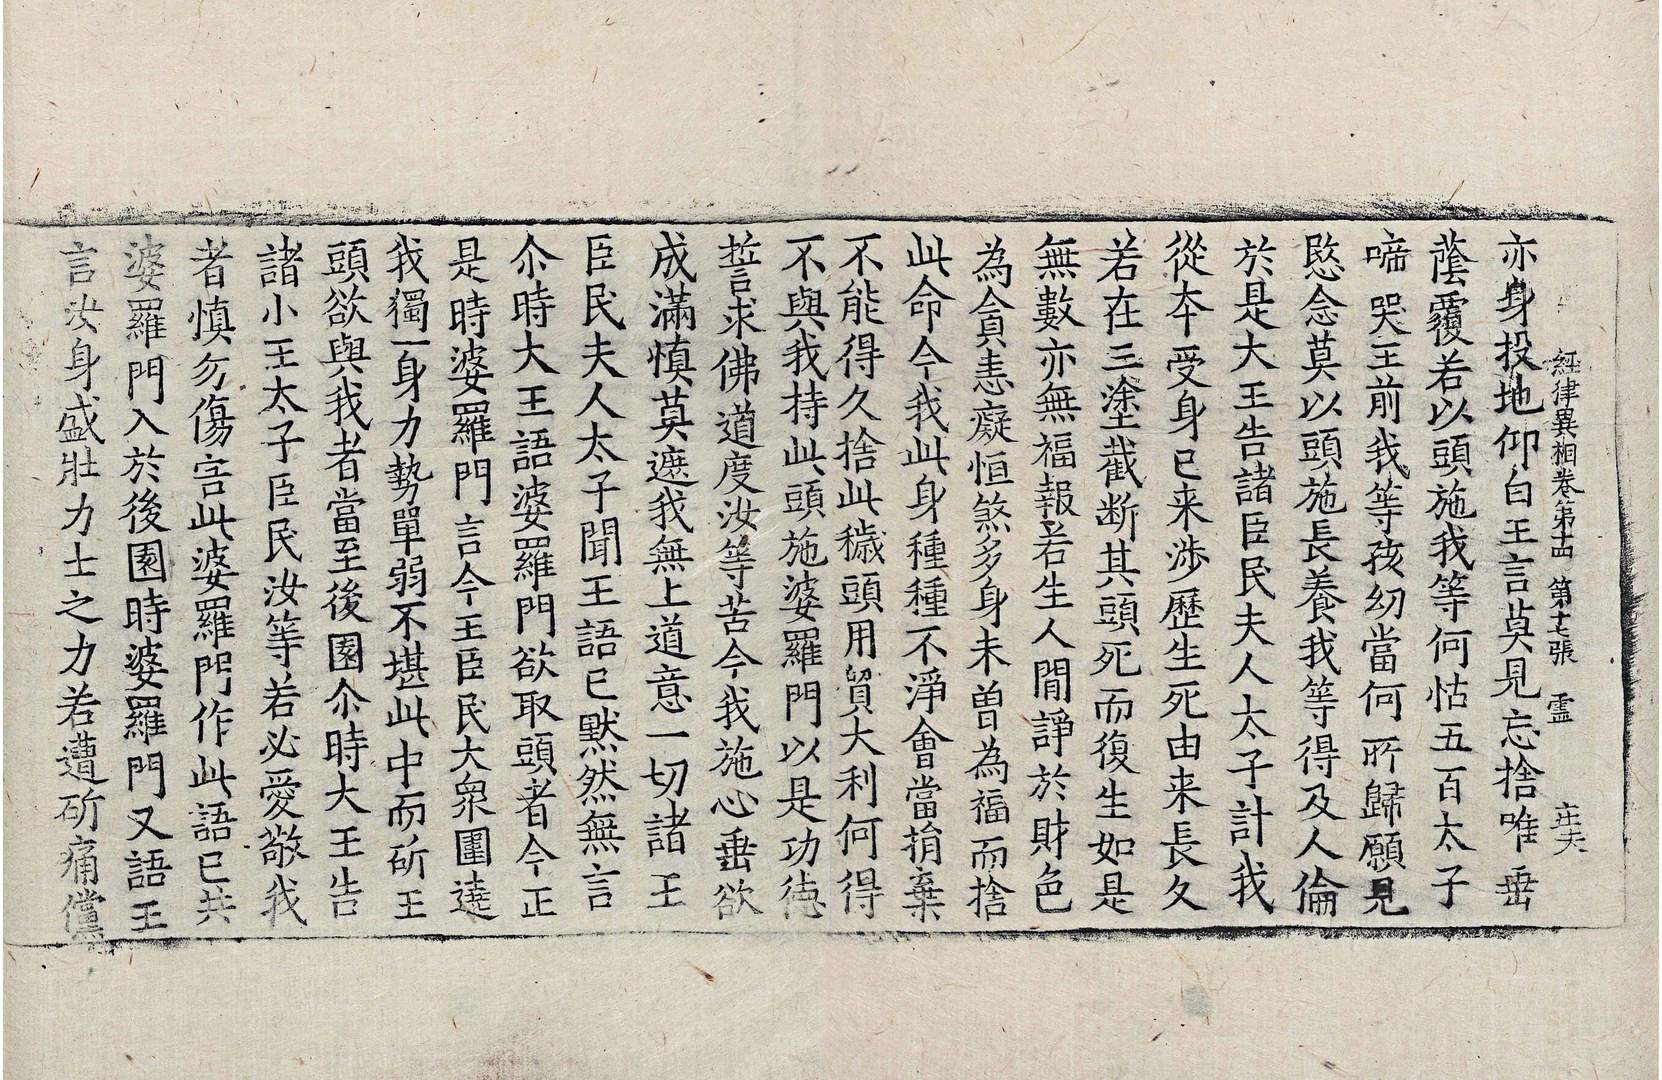 經律異相卷第十四 第十七張 靈 庄夫
亦身投地仰白王言莫見忘捨唯垂
蔭覆若以頭施我等何怙五百太子
啼哭王前我等孩幼當何所歸願見
愍念莫以頭施長養我等得及人倫
於是大王告諸臣民夫人太子計我
從本受身已来涉歷生死由来長久
若在三塗截斷其頭死而復生如是
無數亦無福報若生人閒諍於財色
為貪恚癡恒煞多身未曾為福而捨
此命今我此身種種不淨會當捐棄
不能得久捨此穢頭用貿大利何得
不與我持此頭施婆羅門以是功徳
誓求佛道度汝等苦今我施心垂欲
成滿慎莫遮我無上道意一切諸王
臣民夫人太子聞王語已默然無言
尒時大王語婆羅門欲取頭者今正
是時婆羅門言今王臣民大衆圍遶
我獨一身力勢單弱不堪此中而斫王
頭欲與我者當至後園尒時大王告
諸小王太子臣民汝等若必愛敬我
者慎勿傷害此婆羅門作此語已共
婆羅門入於後園時婆羅門又語王
言汝身盛壯力士之力若遭斫痛儻